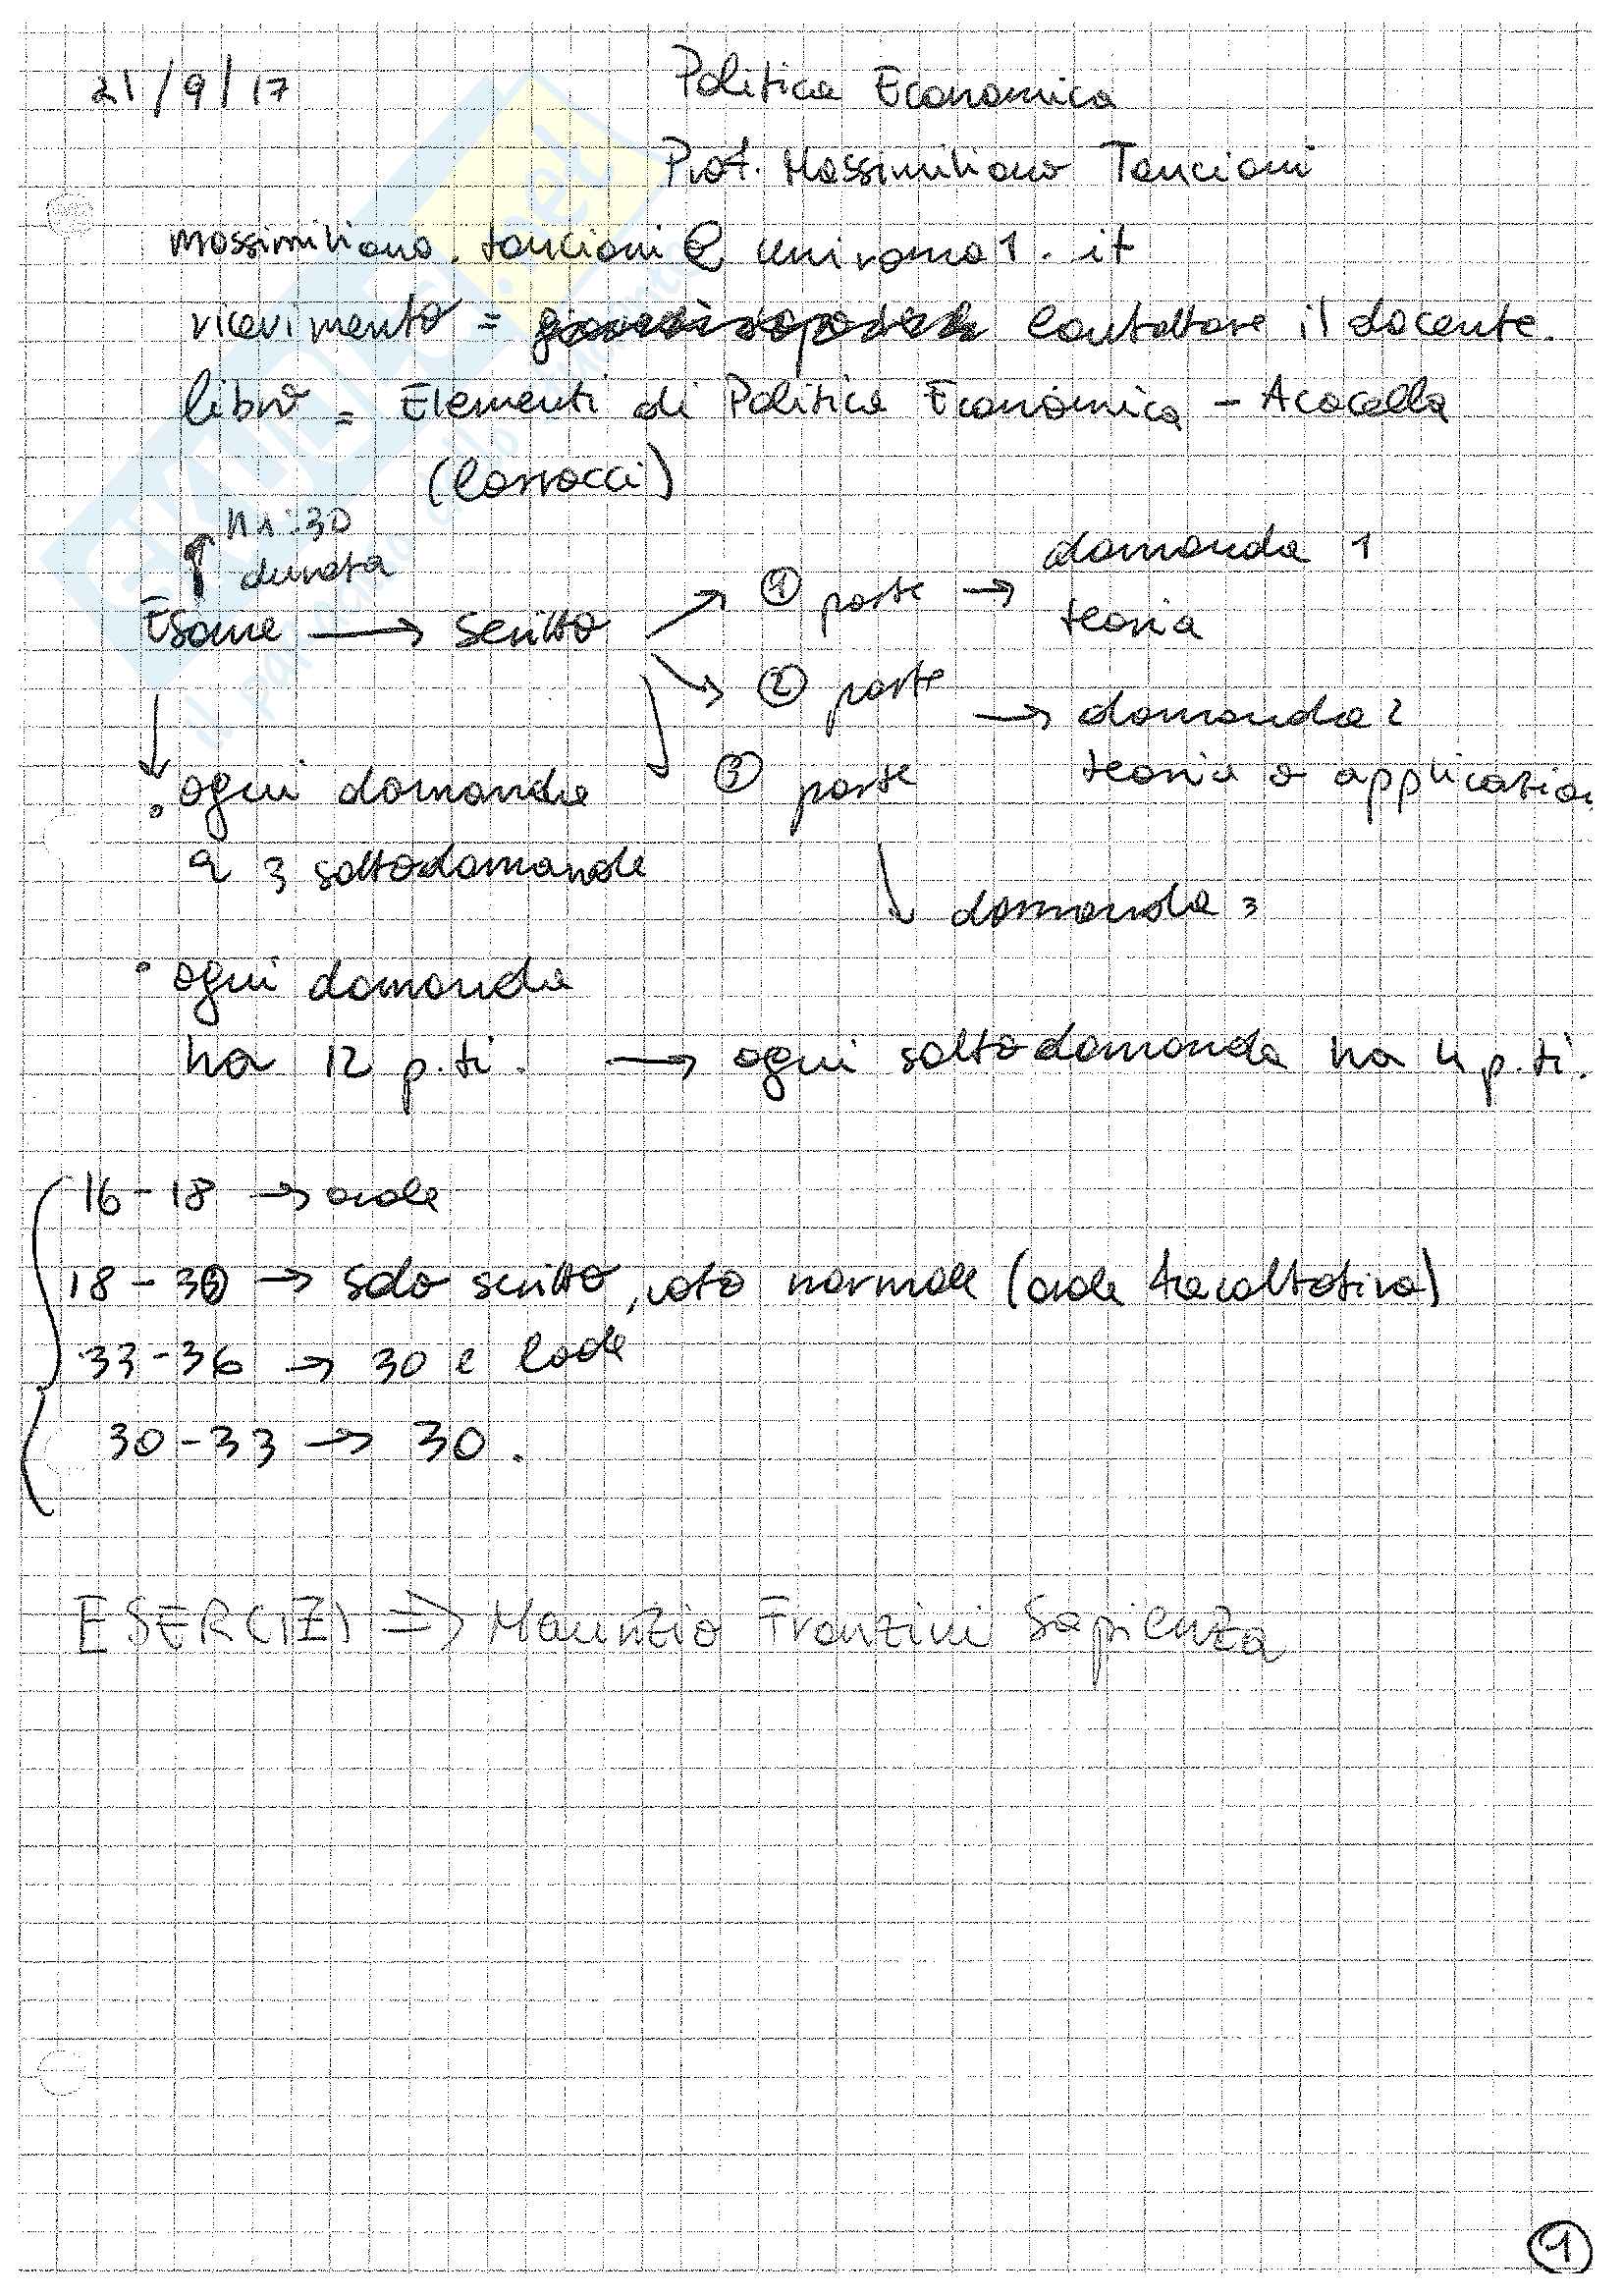 21/9/17 Politica Economica
Prof. Massimiliano Tancioni
massimiliano.tancioni@uniroma1.it
ricevimento = contattare il docente.
libro = Elementi di Politica Economica - Acocella
(Carrocci)
h 1:30
durata
Esame → scritto → ① parte → domanda 1
teoria
② parte → domanda 2
teoria o applicazion
③ parte
domanda 3
• ogni domanda
a 3 sottodomande
• ogni domanda
ha 12 p.ti. → ogni sottodomanda ha 4 p.ti.
16-18 → orale
18-30 → solo scritto, voto normale (orale facoltativo)
33-36 → 30 e lode
30-33 → 30.
ESERCIZI ⇒ Maurizio Franzini Sapienza
1